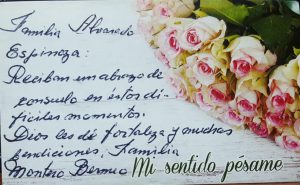 Familia Alvarado
Espinoza:
Reciban un abrazo de
consuelo en éstos di-
ficiles momentos.
Dios les dé fortaleza y muchas
bendiciones, Familia
Montero Bermu
Mi sentido pésame